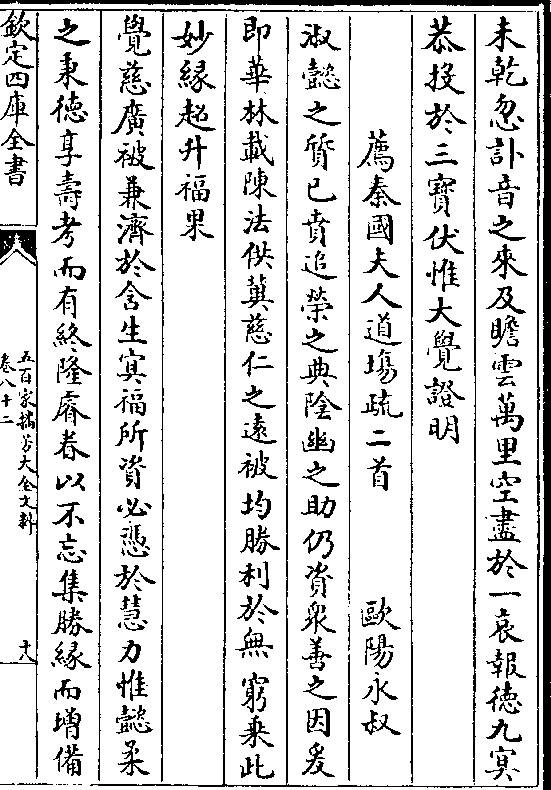 未乾忽訃音之來及瞻雲萬里空盡於一哀報德九冥
恭投於三寶伏惟大覺證明
薦秦國夫人道塲疏二首 歐陽永叔
淑懿之質已賁追榮之典陰幽之助仍資衆善之因爰
即華林載陳法供冀慈仁之遠被均勝利於無窮乗此
妙縁超升福果
覺慈廣被兼濟於含生冥福所資必憑於慧力惟懿柔
之秉德享壽考而有終隆睠眷以不忘集勝縁而増備
欽定四庫全書
五百家播芳大全文粹
卷八十二
十八